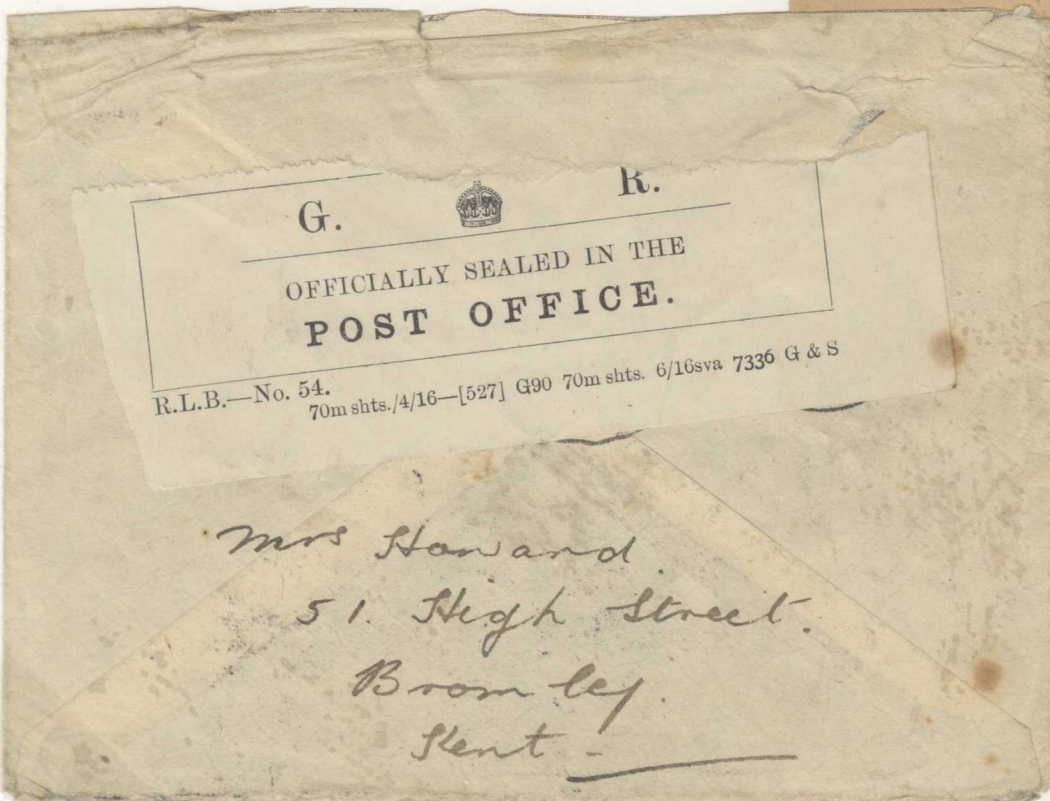 G. R.
OFFICIALLY SEALED IN THE
POST OFFICE.
R.L.B.—No. 54.
70m shts./4/16—[527] G90 70m shts. 6/16sva 7336 G & S
Mrs Howard.
51. High Street.
Bromley.
Kent -